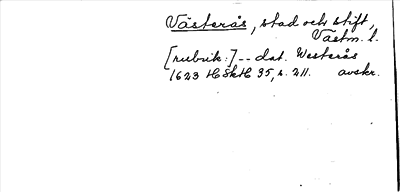 Västerås, stad och stift,
Västm. l.
[rubrik:] -- dat. Westerås
1623 HSkH 35, s. 211. avskr.